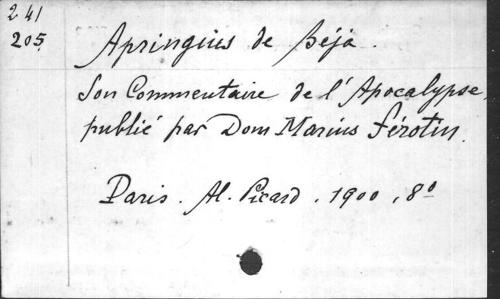 241
205
Apringius de Béja.
Son Commentaire de l'Apocalypse,
publié par Dom Marius Férotin.
Paris. Al. Picard. 1900, 8º